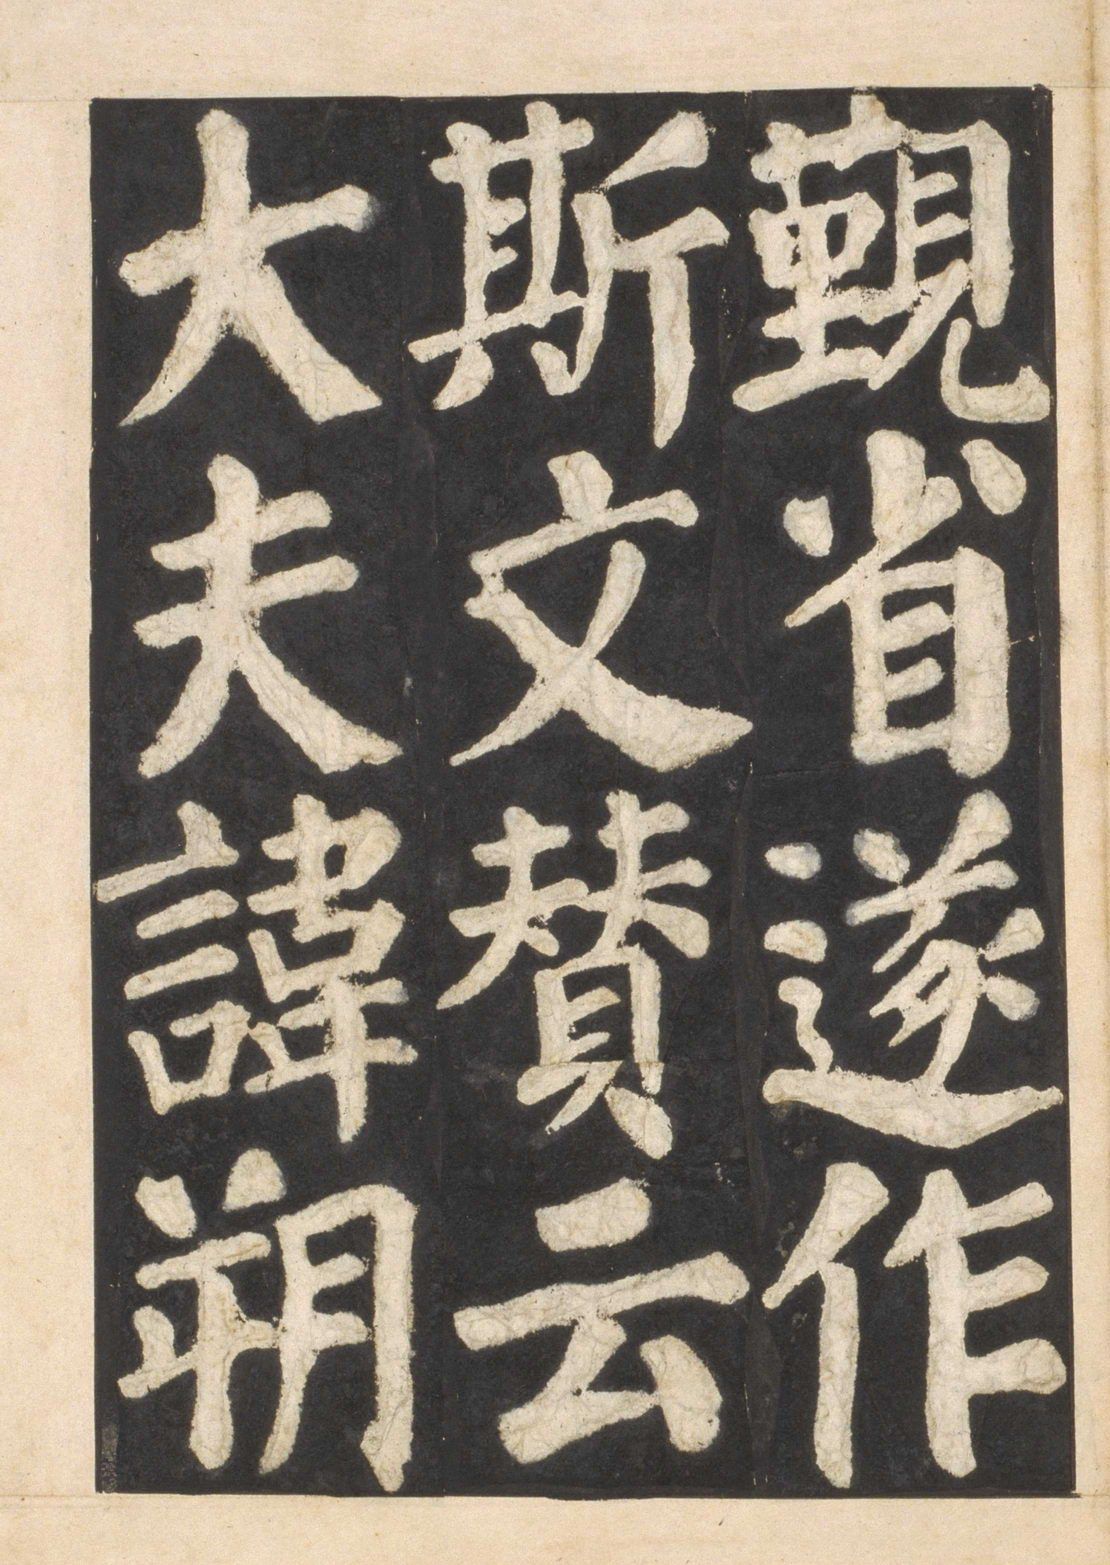 覲省遂作
斯文賛云
大夫諱朔